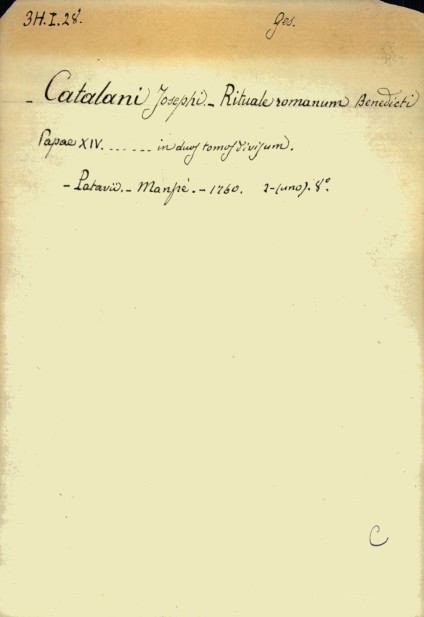 3H.I.28. Ges.
- Catalani Josephi - Rituale romanum Benedicti
Papae XIV. ...... in duos tomos divisum.
- Patavii. - Manfrè. - 1760. 2-(uno). 8°.
C